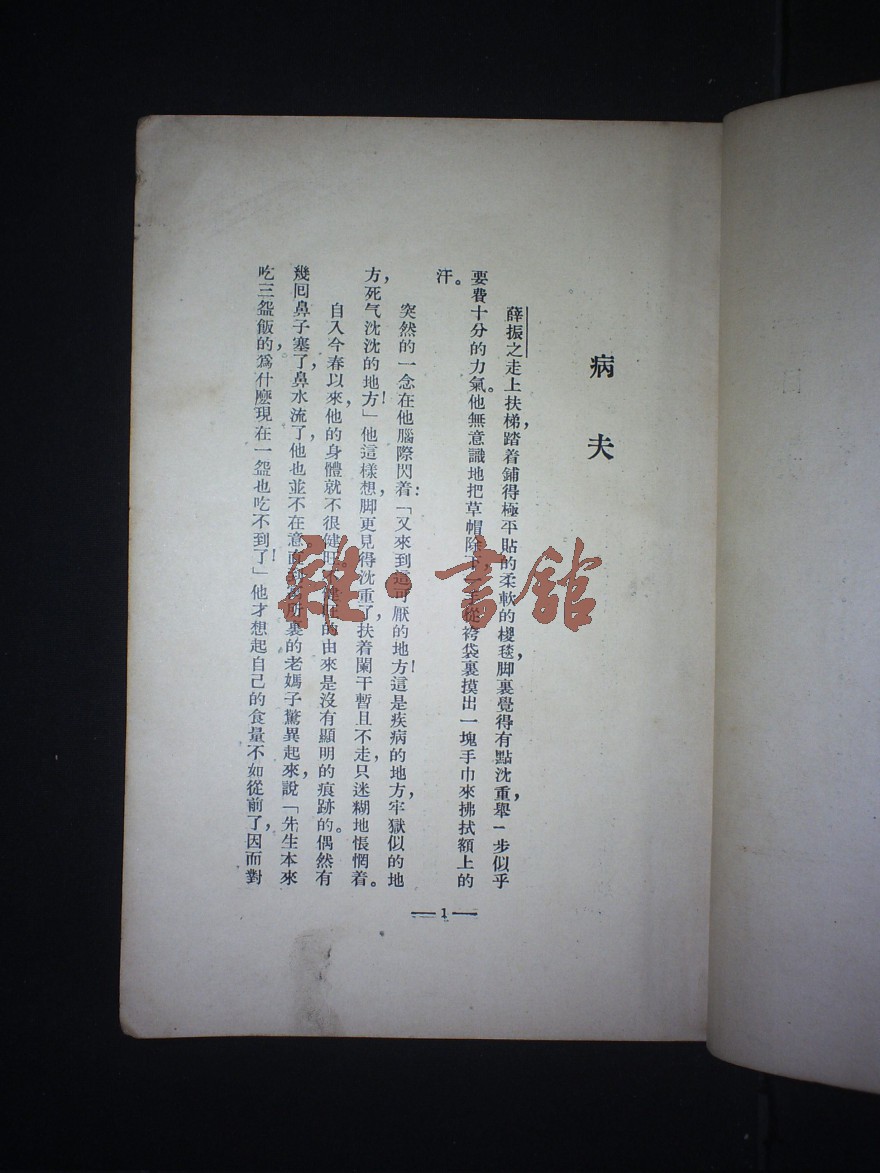 病夫
薛振之走上扶梯，踏着鋪得極平貼的柔軟的椶毯，脚裏覺得有點沈重，舉一步似乎
要費十分的力氣。他無意識地把草帽除下，一手從袴袋裏摸出一塊手巾來拂拭額上的
汗。
突然的一念在他腦際閃着：「又來到這可厭的地方！這是疾病的地方，牢獄似的地
方，死气沈沈的地方！」他這樣想，脚更見得沈重了，扶着闌干暫且不走，只迷糊地悵惘着。
自入今春以來，他的身體就不很健旺。不健旺的由來是沒有顯明的痕跡的。偶然有
幾囘鼻子塞了，鼻水流了，他也並不在意。裏的老媽子驚異起來，說「先生本來
吃三盌飯的，爲什麼現在一盌也吃不到了！」他才想起自己的食量不如從前了，因而對
1
雜·書舘